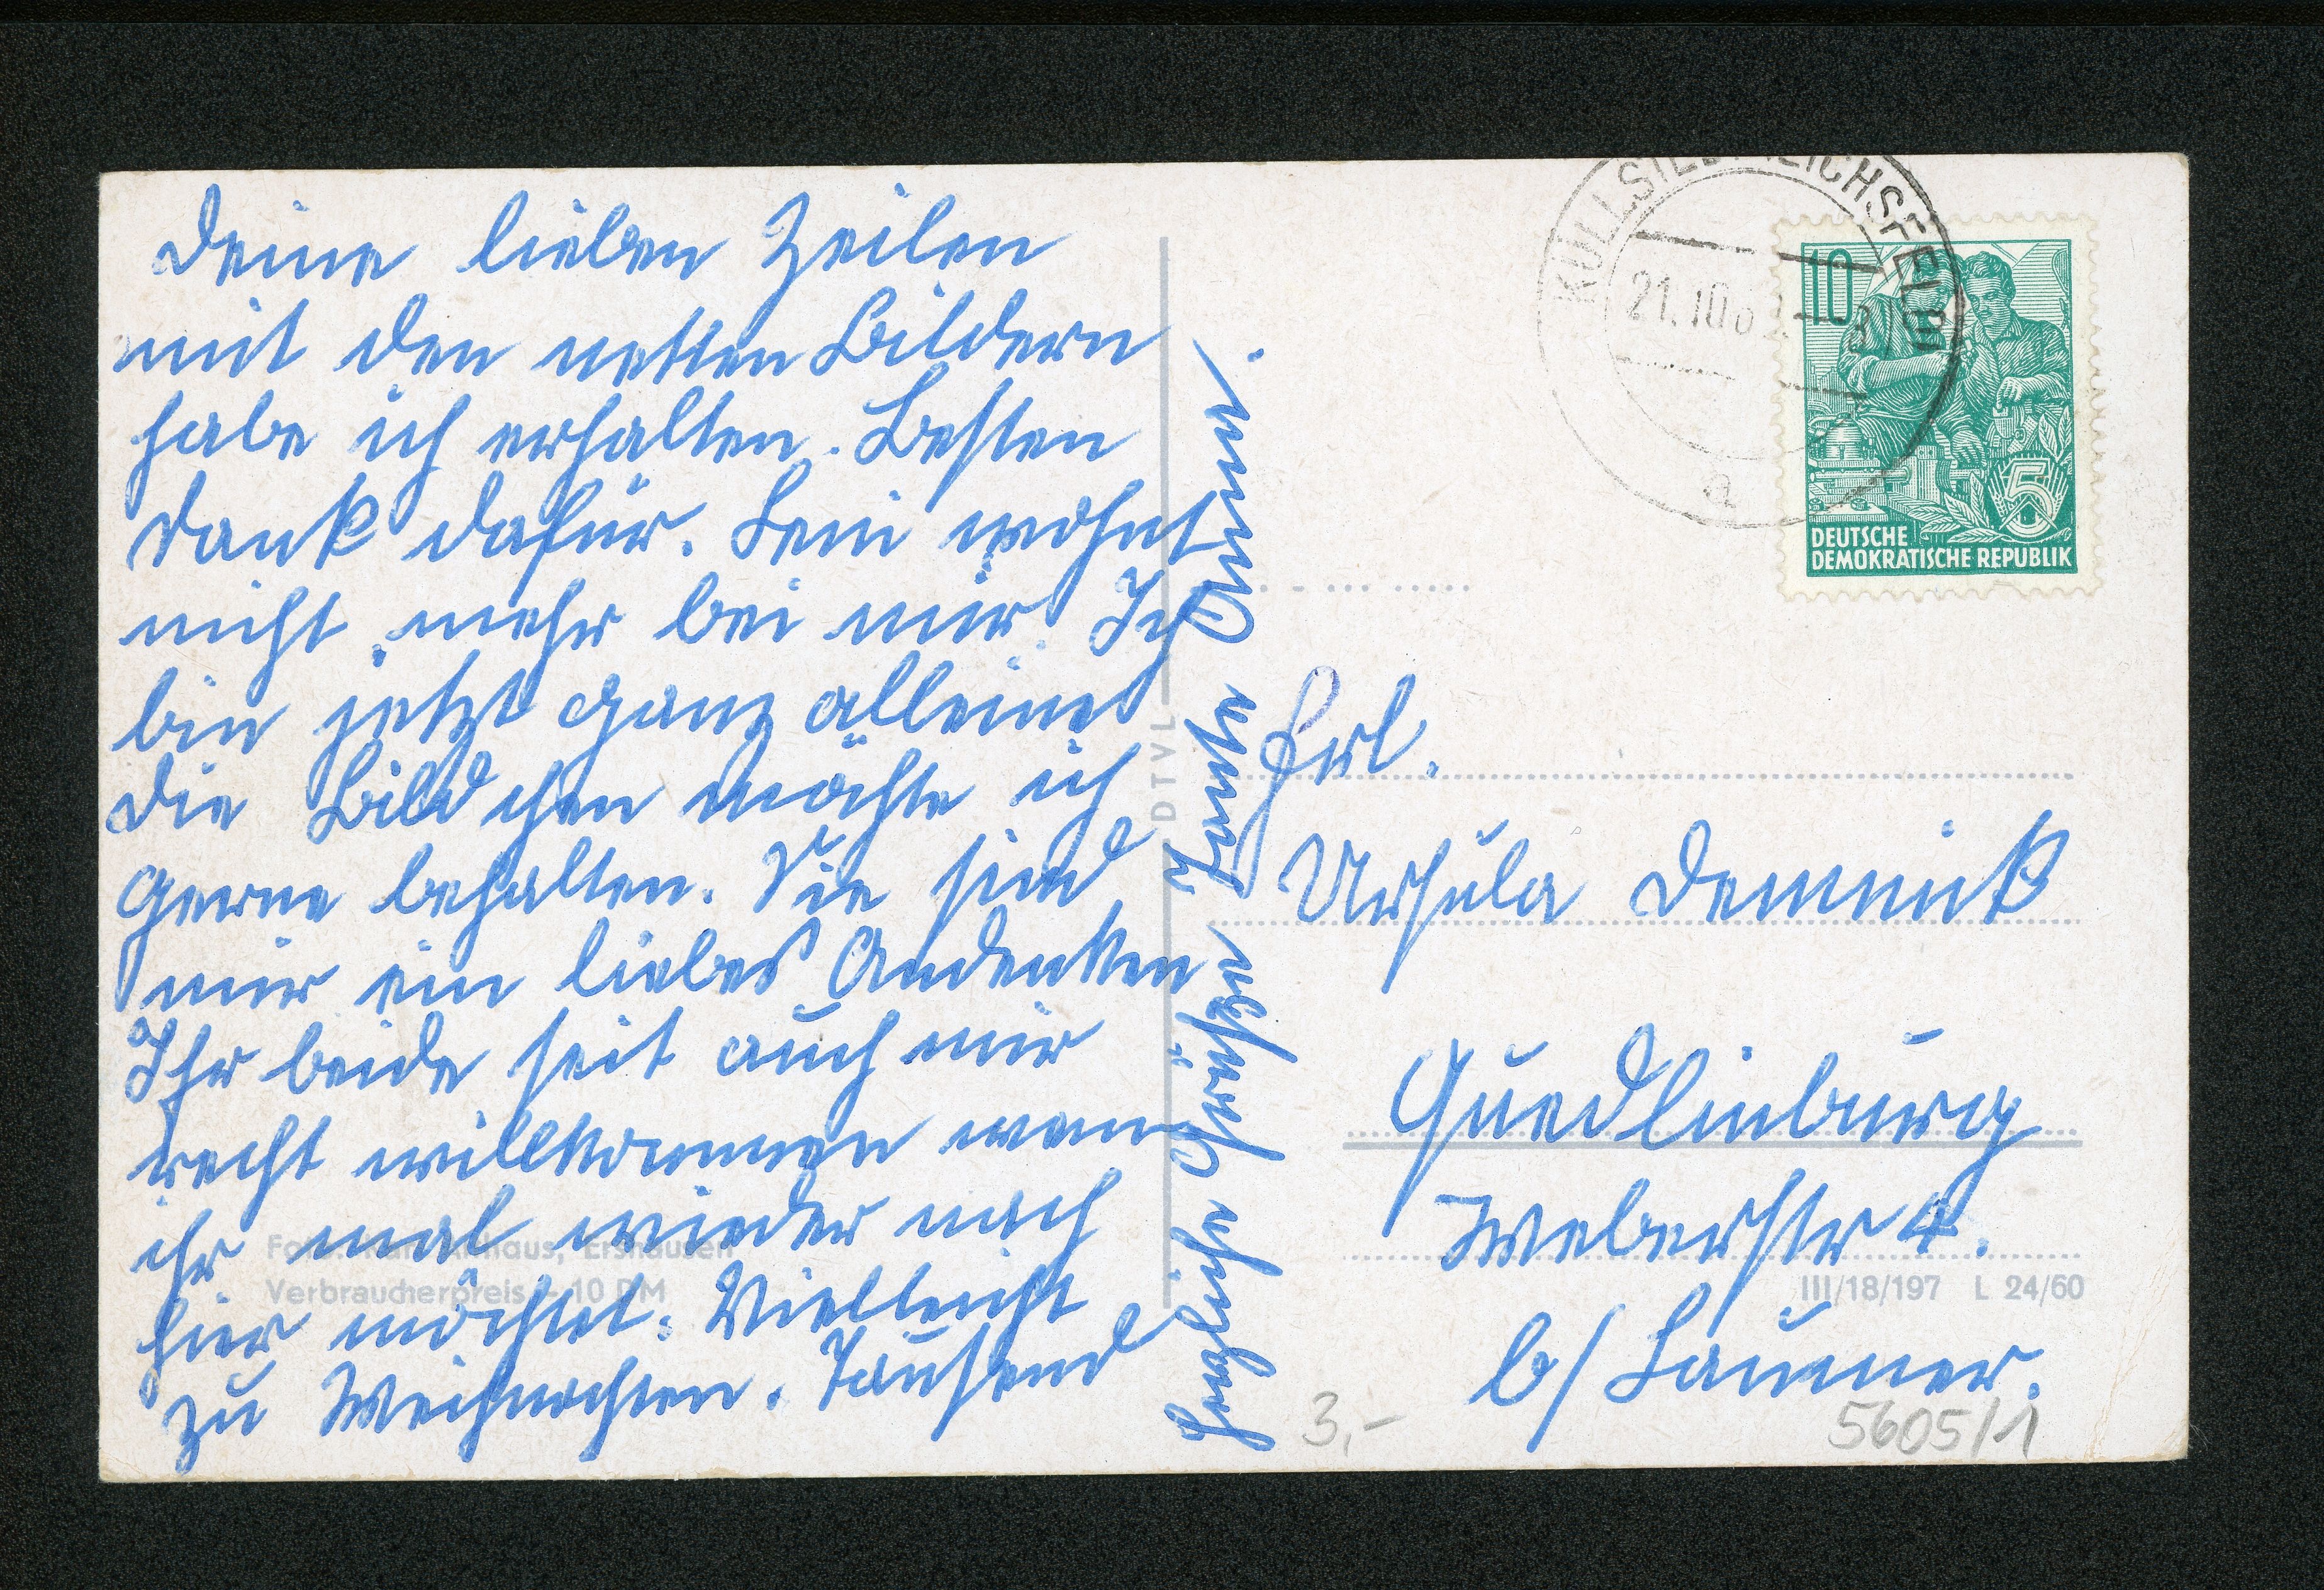 Deine lieben Zeilen
mit den netten Bildern
habe ich erhalten. Besten
Dank dafür. Leni wohnt
nicht mehr bei mir. Ich
bin jetzt ganz alleine
die Bildchen möchte ich
gerne behalten. Sie sind
mir ein liebes Andenken
Ihr beide seit auch mir
recht willkommen wenn
ihr mal wieder nach
hier möchtet. Vielleicht
zu Weihnachten. Tausend
herzliche Grüße Tante Anna.
Verbraucherpreis -,10 DM
DTVL
KÜLLSTEDT (EICHSFELD)
21.10.6
a
10
5
DEUTSCHE
DEMOKRATISCHE REPUBLIK
Frl.
Ursula Demmick
Quedlinburg
Weberstr 4.
III/18/197 L 24/60
b/ Laumer.
3,-
5605/1